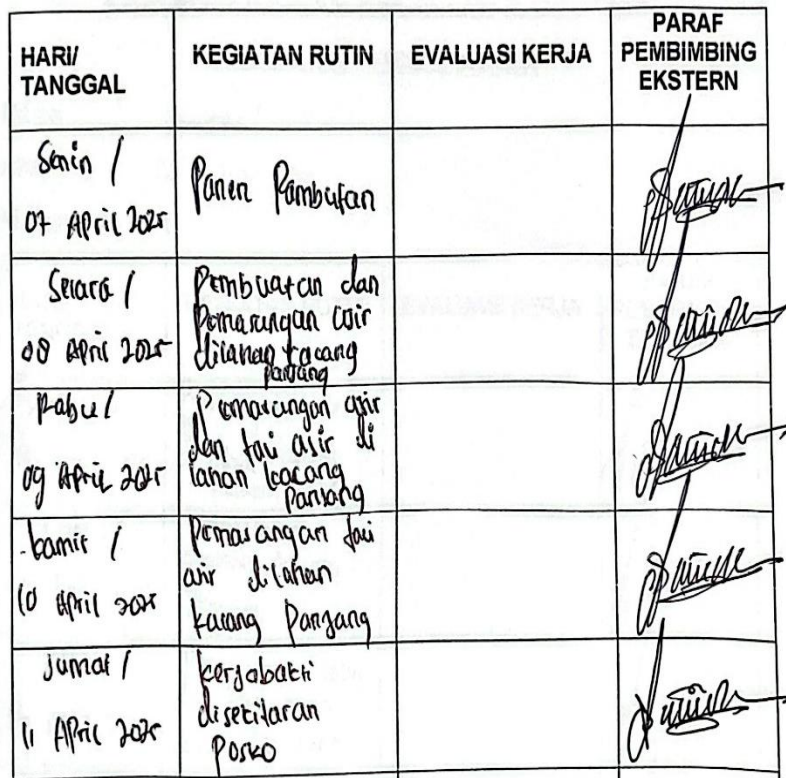 HARI/
TANGGAL
KEGIATAN RUTIN
EVALUASI KERJA
PARAF
PEMBIMBING
EKSTERN
Senin /
07 April 2025
Panen Rambutan
Selasa /
08 April 2025
Pembuatan dan
Pemasangan ajir
dilahan kacang
panjang
Rabu /
09 April 2025
Pemasangan ajir
dan tali ajir di
lahan kacang
panjang
kamis /
10 April 2025
Pemasangan tali
ajir dilahan
kacang Panjang
Jumat /
11 April 2025
kerjabakti
disekitaran
Posko